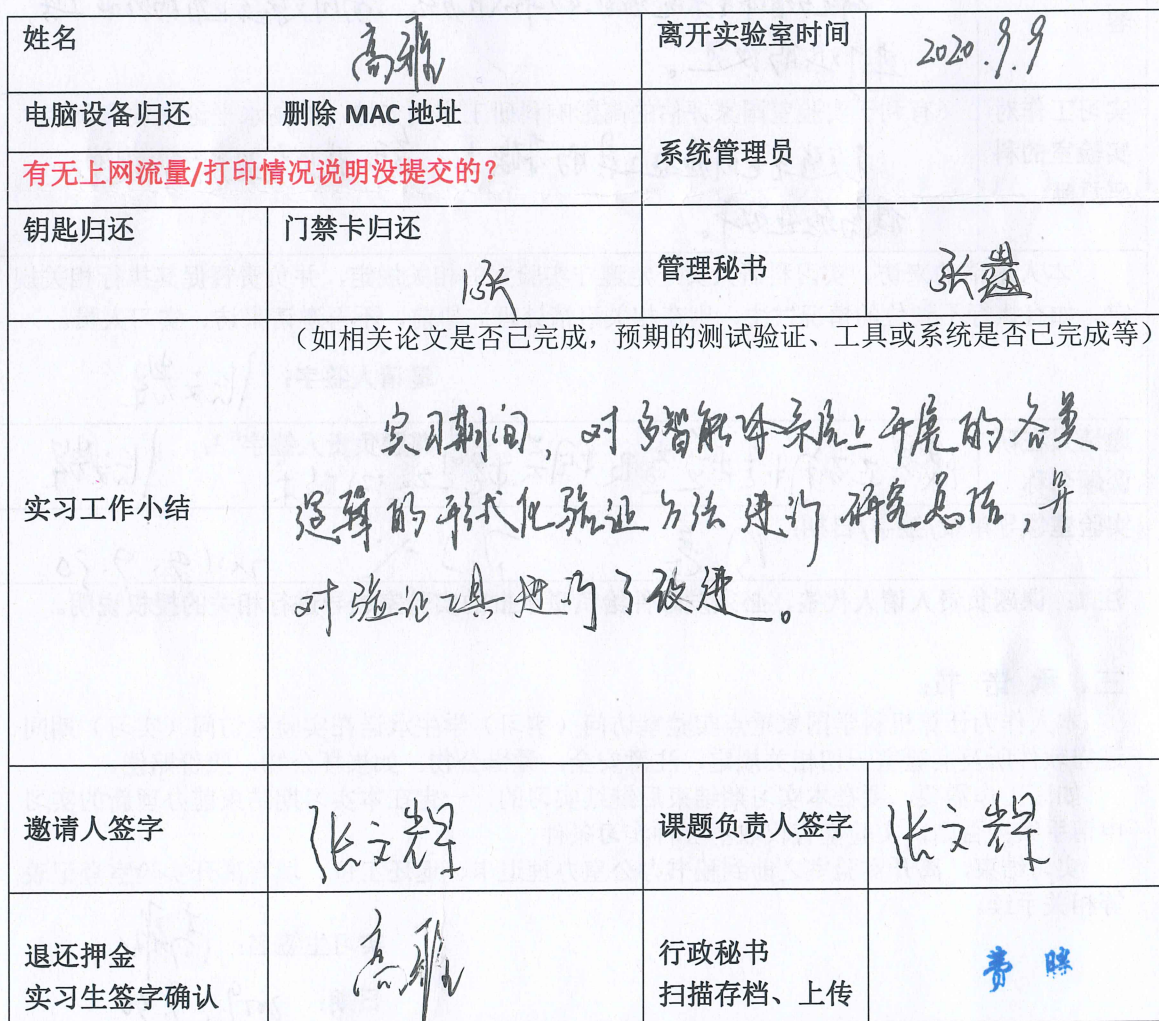 姓名 高雅 离开实验室时间 2020.9.9
电脑设备归还 删除 MAC 地址
系统管理员
有无上网流量/打印情况说明没提交的？
钥匙归还 门禁卡归还
1张 管理秘书 张
（如相关论文是否已完成，预期的测试验证、工具或系统是否已完成等）
实习期间，对多智能体系统上开展的各类
逻辑的形式化验证方法进行研究总结，并
实习工作小结
对验证工具进行了改进。
邀请人签字 张文辉 课题负责人签字 张文辉
退还押金 高雅 行政秘书 费
实习生签字确认 扫描存档、上传